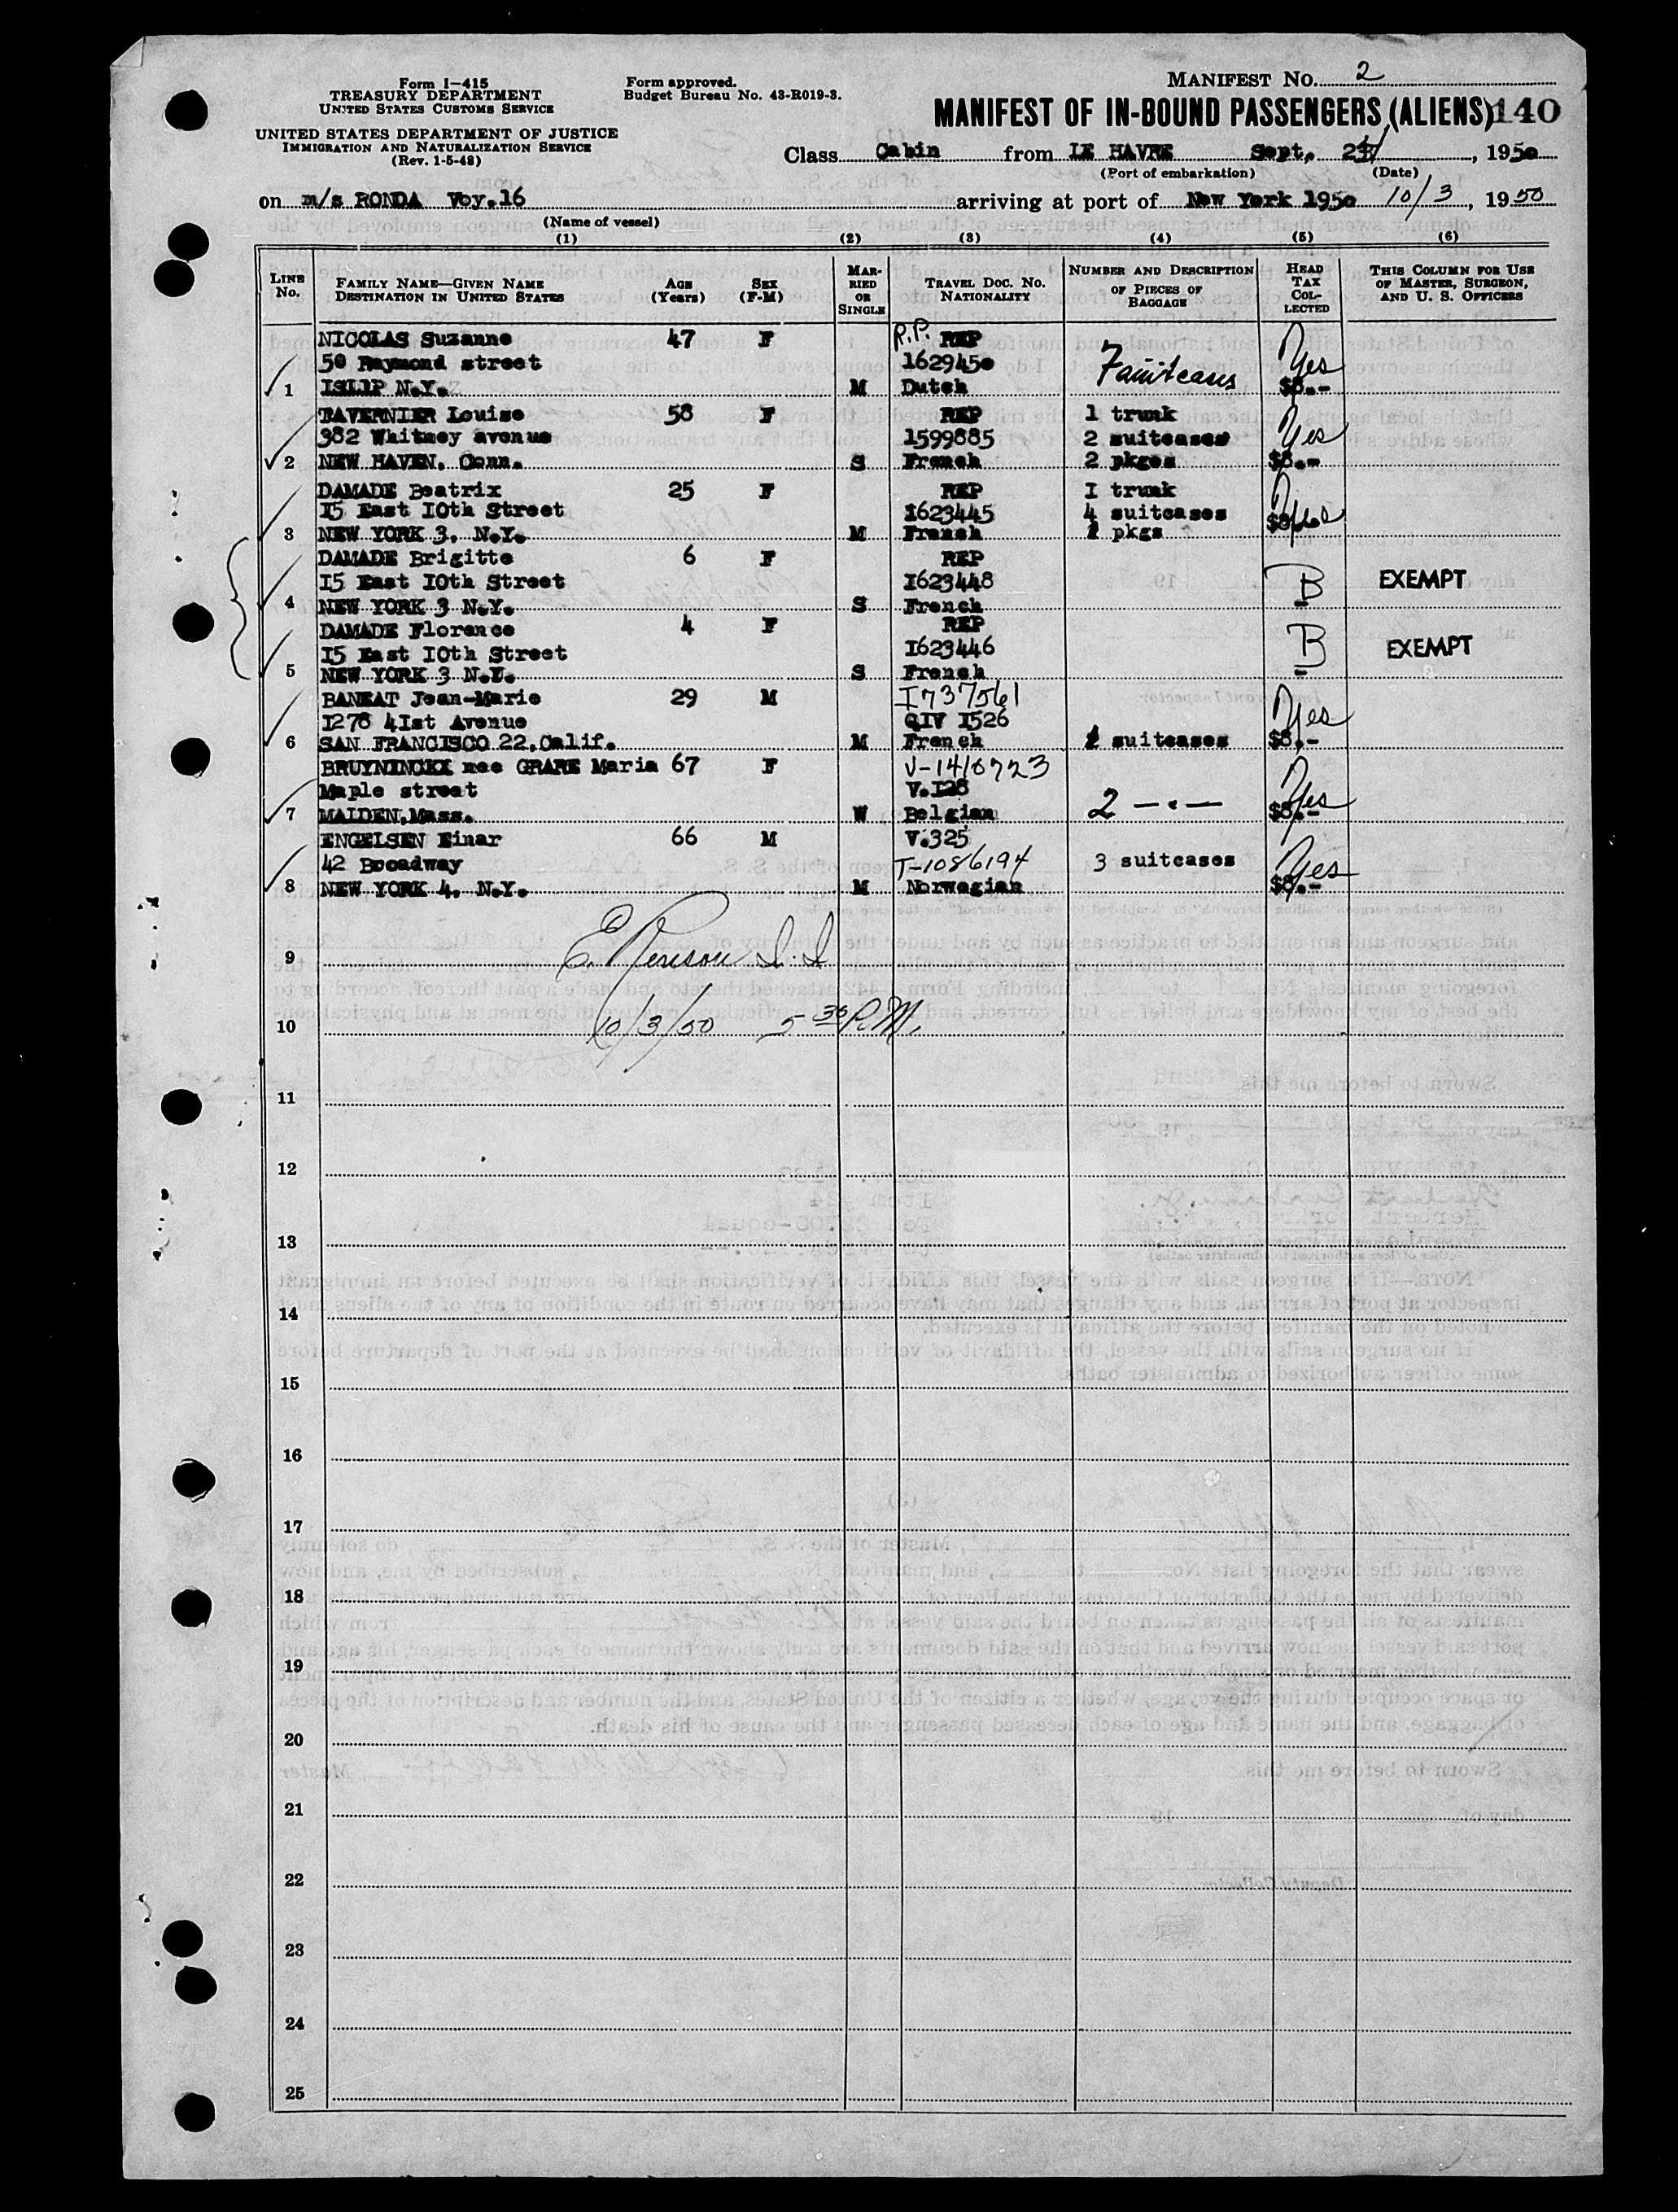 Form I-415
TREASURY DEPARTMENT
UNITED STATES CUSTOMS SERVICE
UNITED STATES DEPARTMENT OF JUSTICE
IMMIGRATION AND NATURALIZATION SERVICE
(Rev. 1-5-48)
Form approved.
Budget Bureau No. 43-R019-3.
MANIFEST No. 2
MANIFEST OF IN-BOUND PASSENGERS (ALIENS) 140
Class Cabin from LE HAVRE Sept, , 1950
(Port of embarkation) (Date)
on m/s RONDA Voy.16 arriving at port of New York 1950 10/3, 1950
(Name of vessel)
(1) (2) (3) (4) (5) (6)
LINE No. FAMILY NAME—GIVEN NAME DESTINATION IN UNITED STATES AGE (Years) SEX (F-M) MARRIED OR SINGLE TRAVEL DOC. NO. NATIONALITY NUMBER AND DESCRIPTION OF PIECES OF BAGGAGE HEAD TAX COLLECTED THIS COLUMN FOR USE OF MASTER, SURGEON, AND U. S. OFFICERS
NICOLAS Suzanne 47 F R.P. REP
50 Raymond street 1629450 7 suitcases Yes
1 ISLIP N.Y. M Dutch $8.-
TAVERNIER Louise 58 F REP 1 trunk
382 Whitney avenue 1599885 2 suitcases Yes
2 NEW HAVEN. Conn. S French 2 pkges $8.-
DAMADE Beatrix 25 F REP I trunk
I5 East I0th Street I623445 4 suitcases Yes
3 NEW YORK 3. N.Y. M French pkgs
DAMADE Brigitte 6 F REP
I5 East I0th Street I623448 B EXEMPT
4 NEW YORK 3 N.Y. S French
DAMADE Florence 4 F REP
I5 East I0th Street I623446 B EXEMPT
5 NEW YORK 3 N.Y. S French
BANEAT Jean-Marie 29 M I737561
I278 4Ist Avenue QIV I526 Yes
6 SAN FRANCISCO 22.Calif. M French suitcases $8.-
BRUYNINCKX nee GRARE Maria 67 F V-1410723
Maple street V.I28 Yes
7 MALDEN.Mass. W Belgian 2 — " — $8.-
ENGELSEN Einar 66 M V.325
42 Broadway T-1086194 3 suitcases Yes
8 NEW YORK 4. N.Y. M Norwegian $8.-
9
10 10/3/50 5 30 P.M.
11
12
13
14
15
16
17
18
19
20
21
22
23
24
25